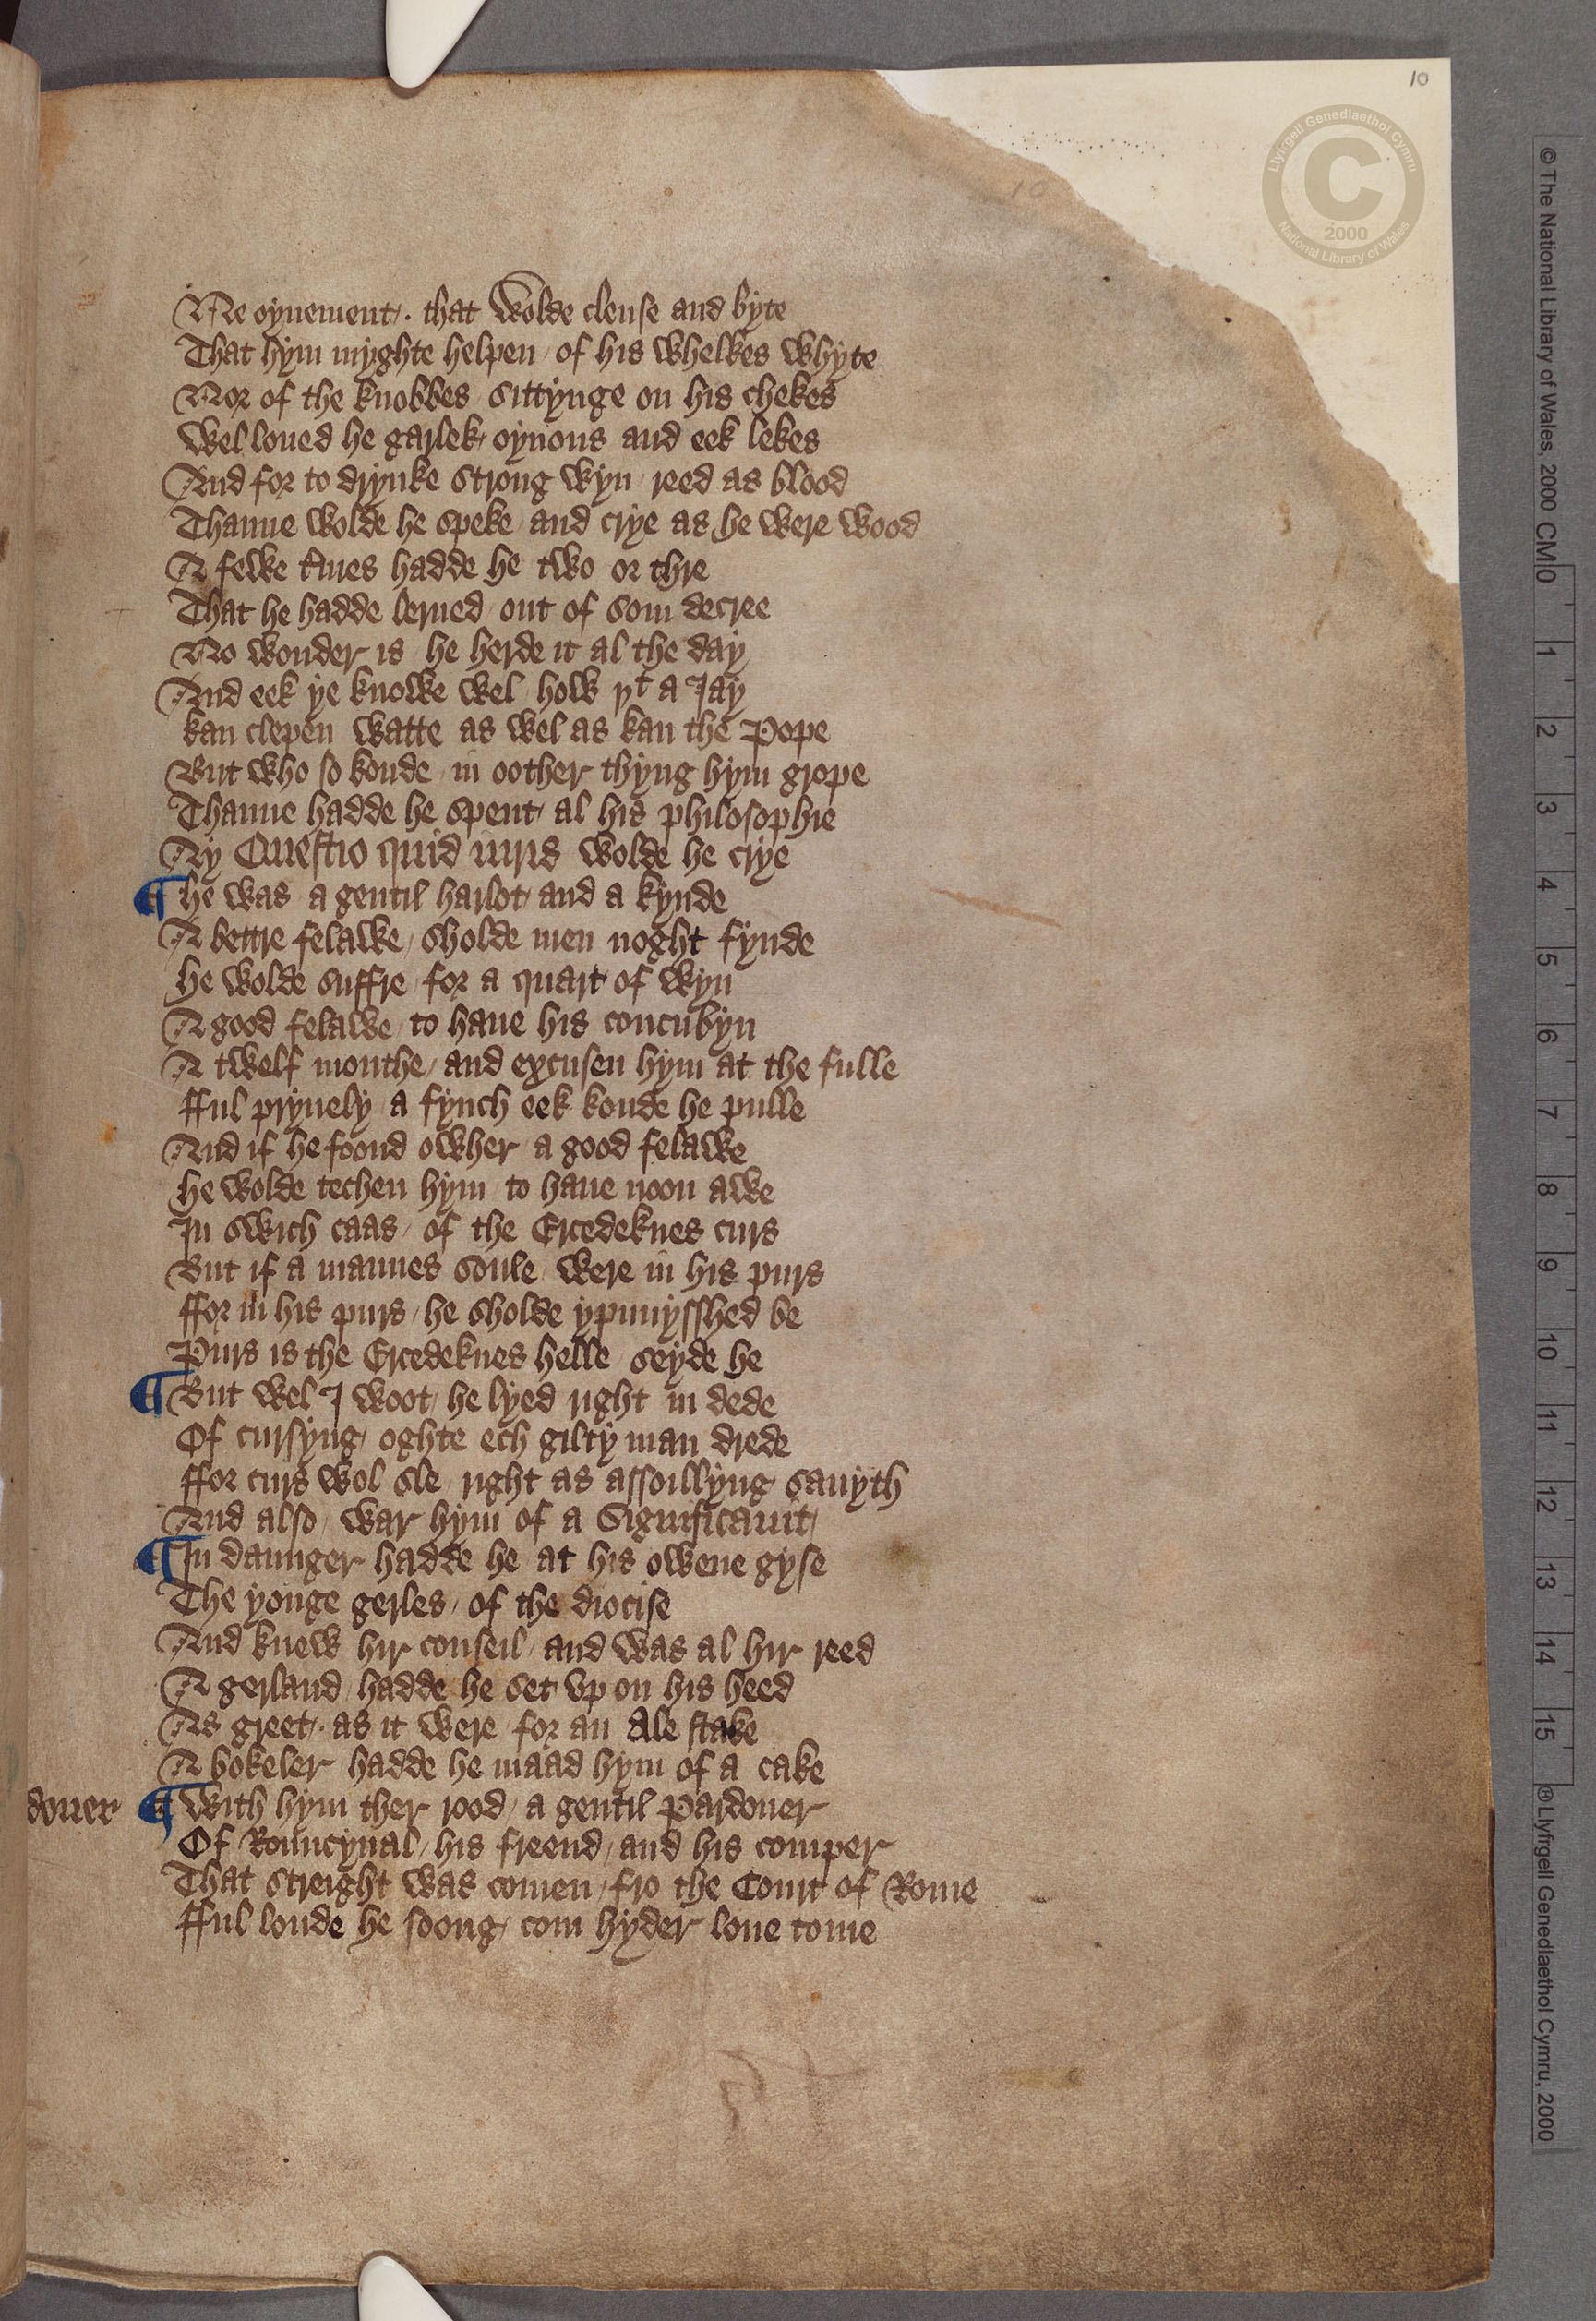 10
Llyfrgell Genedlaethol Cymru
C
2000
National Library of Wales
10
Ne oynement /. that wolde clense and byte
That hym myghte helpen / of his whelkes whyte
Nor of the knobbes / sittynge on his chekes
Wel loued he garlek / oynons and eek lekes
And for to drynke strong wyn / reed as blood
Thanne wolde he speke / and crye as he were wood
A fewe termes hadde he / two or thre
That he hadde lerned / out of som decree
No wonder is / he herde it al the day
And eek ye knowe wel / how þt a Jay
kan clepen watte / as wel as kan the Pope
But who so koude / in oother thyng hym grope
Thanne hadde he spent / al his philosophie
Ay Questio quid iuris / wolde he crye
¶ he was a gentil harlot / and a kynde
A bettre felawe / sholde men noght fynde
He wolde suffre / for a quart of wyn
A good felawe / to haue his concubyn
A twelf monthe / and excusen hym at the fulle
fful pryuely / a fynch eek koude he pulle
And if he foond owher / a good felawe
He wolde techen hym / to haue noon awe
In swich caas / of the Ercedeknes curs
But if a mannes soule / were in his purs
ffor in his purs / he sholde ypunysshed be
Purs is the Ercedeknes helle / seyde he
¶ But wel I woot / he lyed right in dede
Of cursyng / oghte ech gilty man drede
ffor curs wol sle / right as assoillyng sauyth
And also / war hym of a Significauit /
¶ In daunger hadde he / at his owene gyse
The yonge gerles / of the diocise
And knew hir conseil / and was al hir reed
A gerland / hadde he set vp on his heed
As greet /. as it were / for an Ale stake
A bokeler / hadde he maad hym of a cake
doner
¶ with hym ther rood / a gentil Pardoner
Of Rouncyual / his freend / and his comper
That streight was comen / fro the Court of Rome
fful loude he soong / com hyder loue tome
© The National Library of Wales, 2000 CM 0 1 2 3 4 5 6 7 8 9 10 11 12 13 14 15 ® Llyfrgell Genedlaethol Cymru, 2000